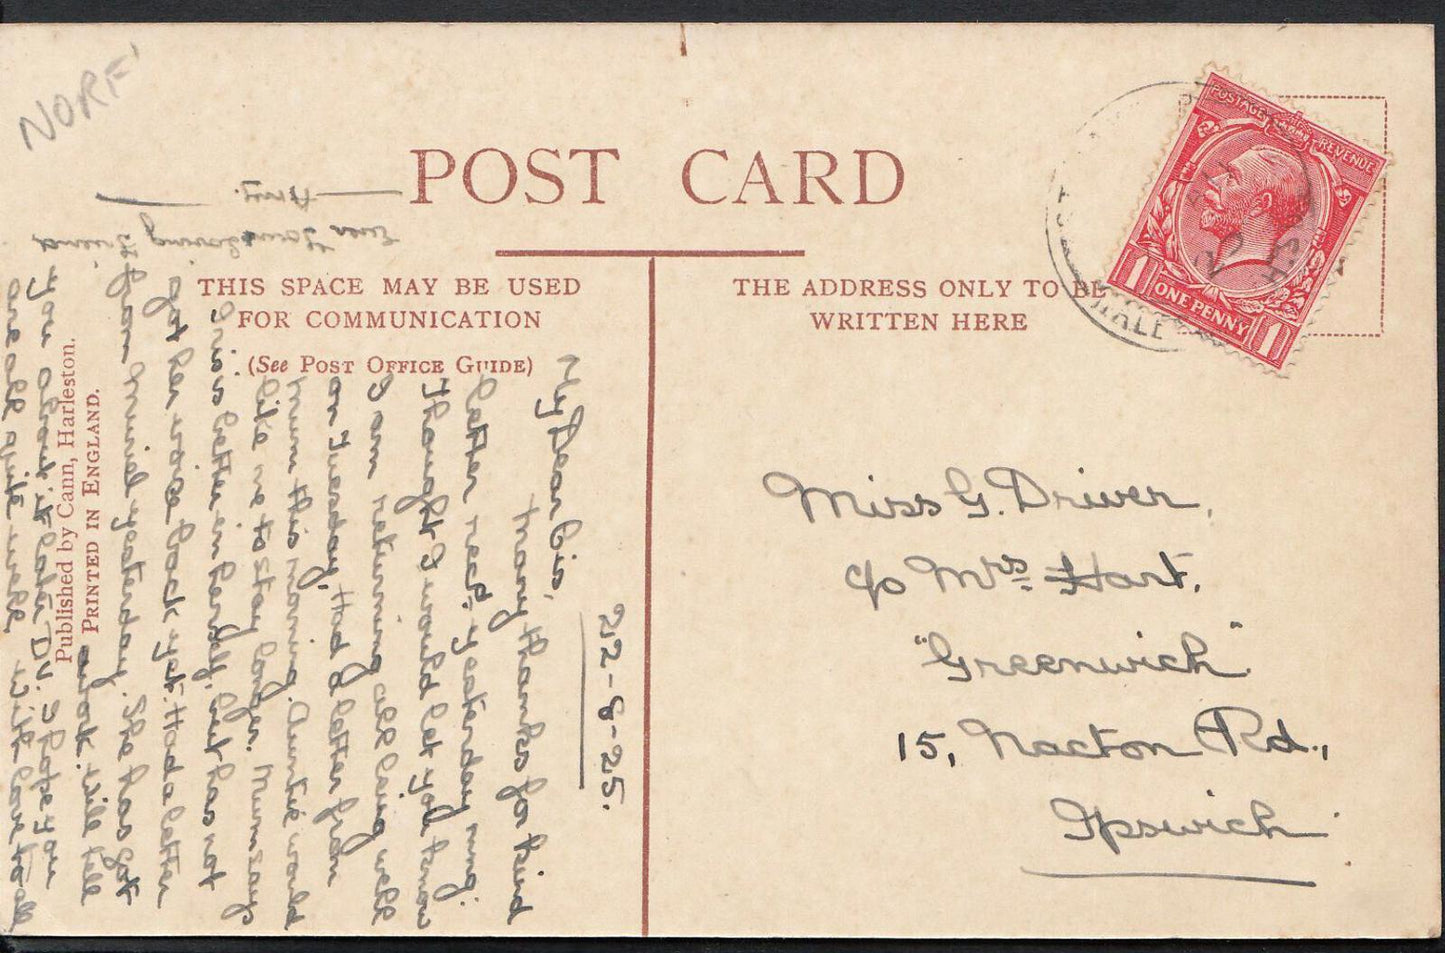 NORF'
POST CARD
THIS SPACE MAY BE USED
FOR COMMUNICATION
(See Post Office Guide)
THE ADDRESS ONLY TO BE
WRITTEN HERE
POSTAGE REVENUE
1 ONE PENNY 1
Miss G. Driver,
c/o Mrs Hart,
"Greenwich"
15, Nacton Rd.,
Ipswich
22-8-25.
My Dear Cis,
Many thanks for kind
letter recd. yesterday mng:
Thought I would let you know
I am returning all being well
on Tuesday, Had letter from
Mum this morning. Auntie would
like me to stay longer. Mum says
is better in herself, but has not
got her voice back yet. Had a letter
from yesterday. She has got
will tell
you about it later D.V. I hope you
are all quite well, with love to all
Ever Your loving friend
Published by Cann, Harleston.
Printed in England.